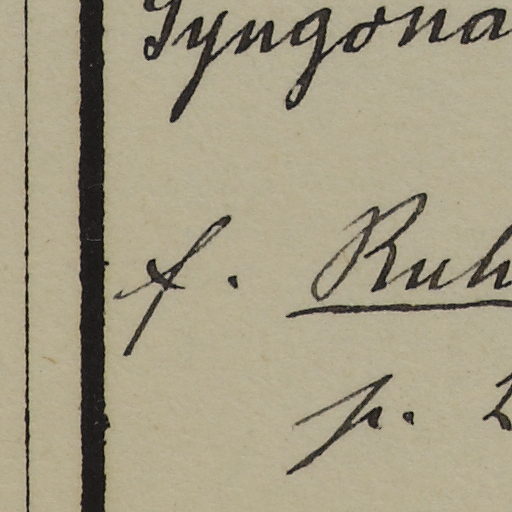 Syngona
f. Ruh
p. 2